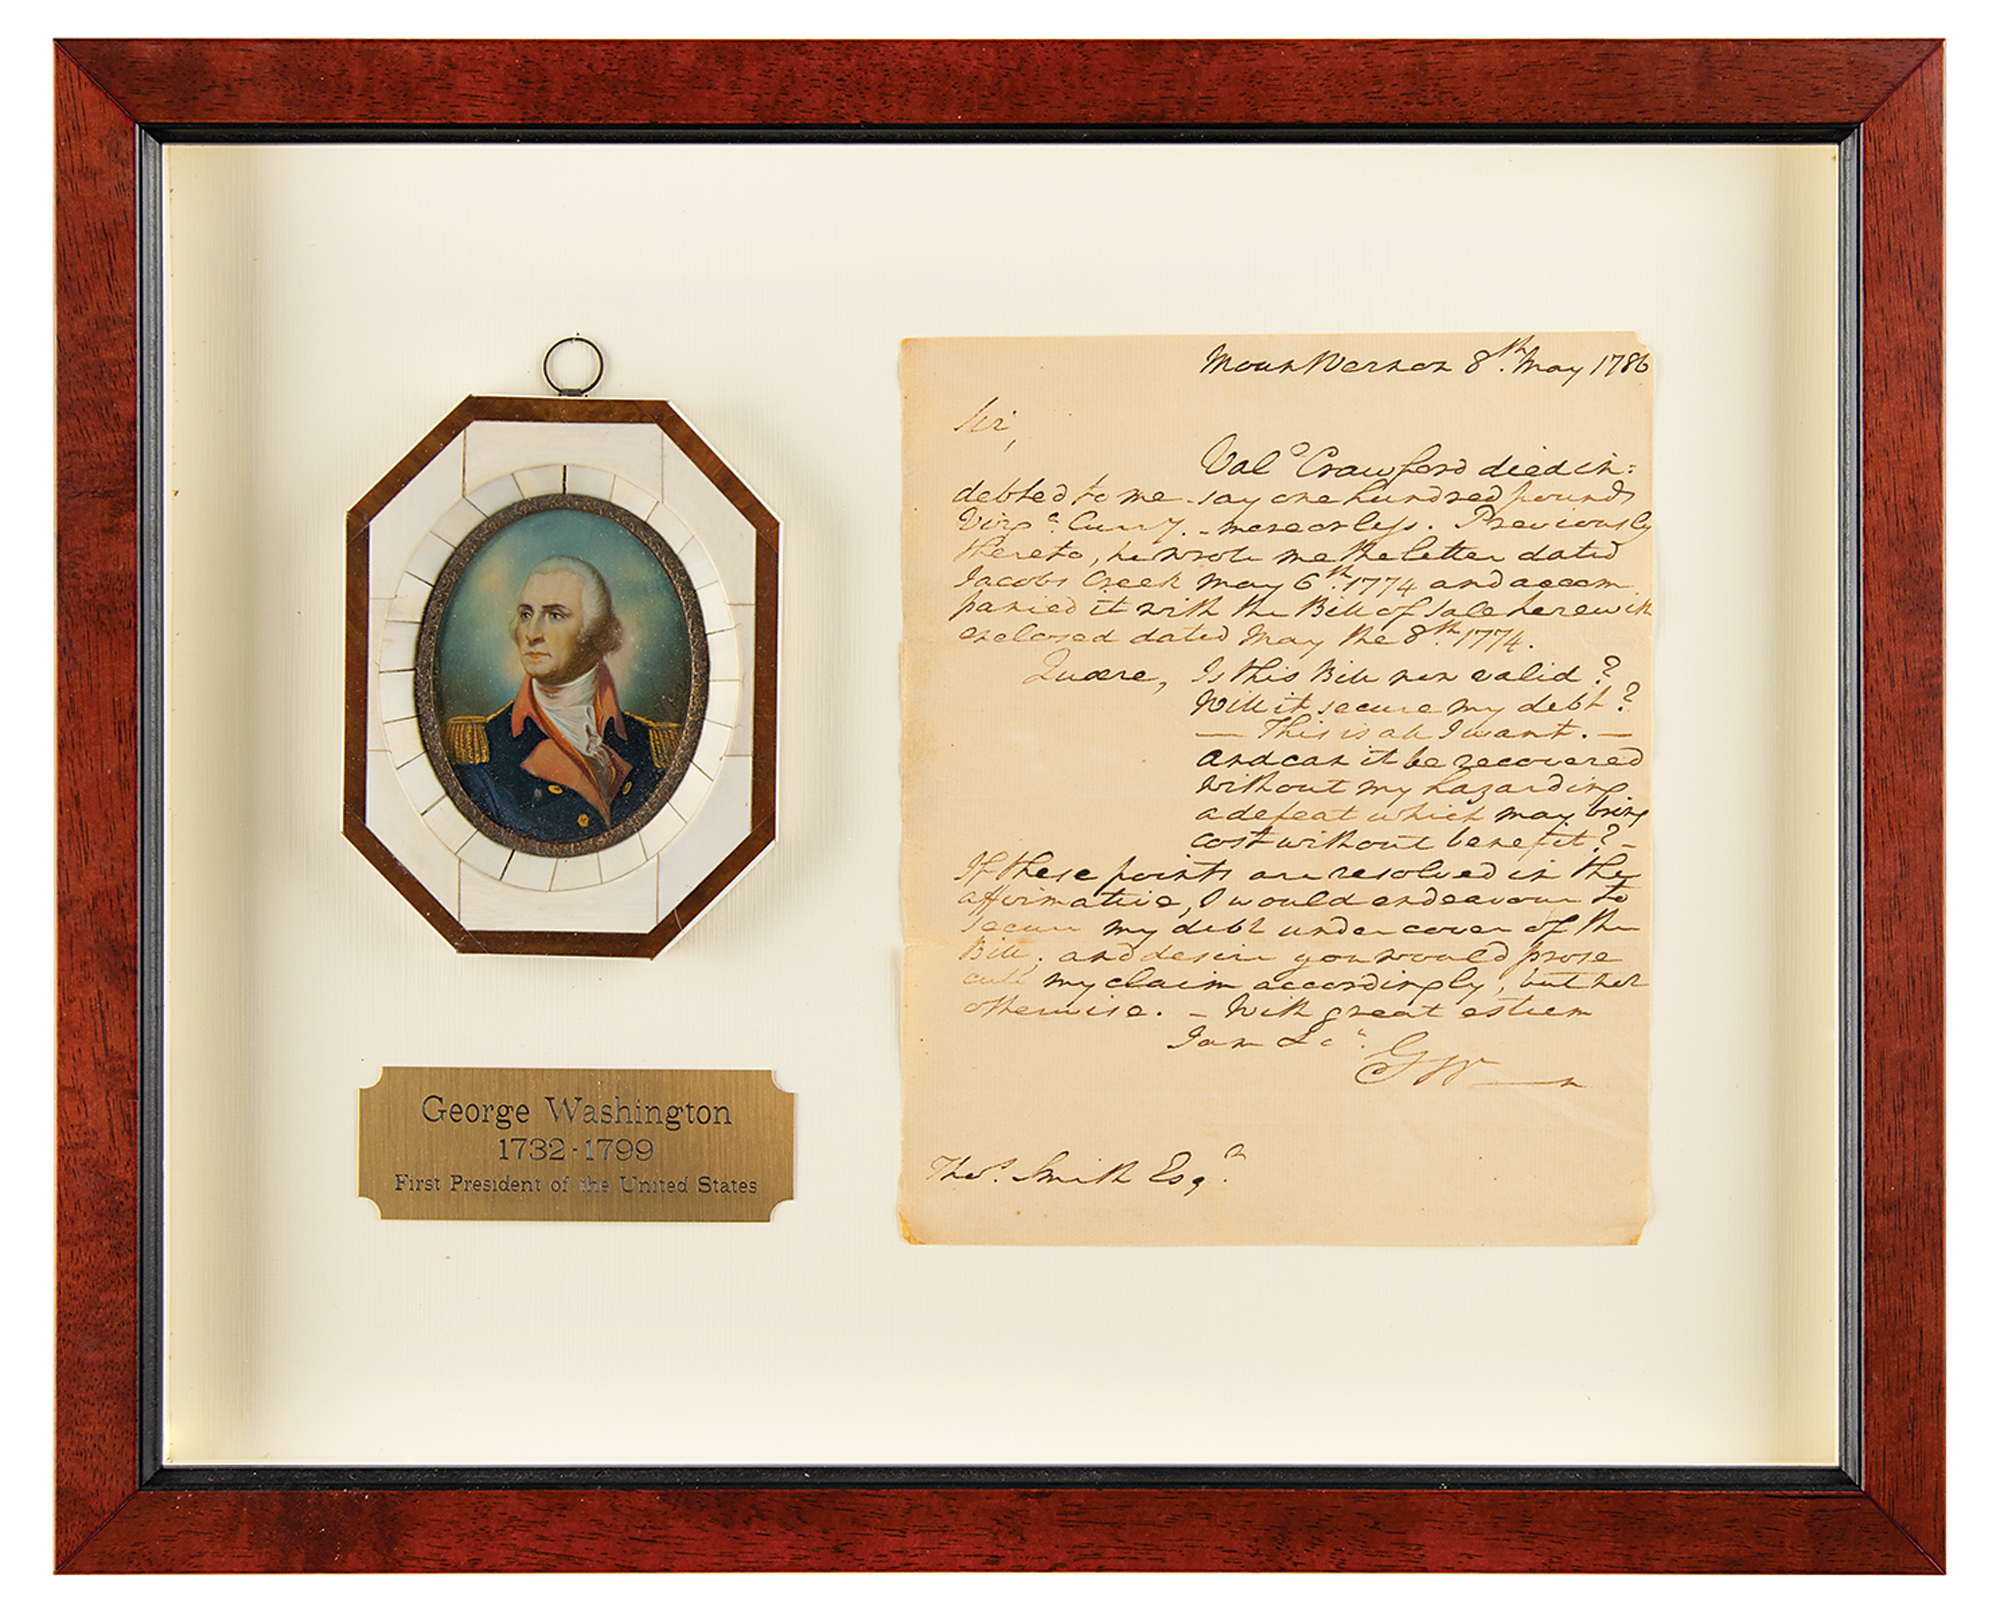 George Washington
1732-1799
First President of the United States
Mount Vernon 8th. May 1786
Sir,
Vale Crawford died in=
debted to me - say one hundred pounds
Virga. Curry. - more or less. Previously
thereto, he wrote me the letter dated
Jacobs Creek May 6th. 1774 and accom
panied it with the Bill of Sale herewith
enclosed dated May the 8th. 1774.
Quære, Is this Bill now valid?
Will it secure my debt?
— This is all I want. —
and can it be recovered
without my hazarding
a defeat which may bring
cost without benefit? -
If these points are resolved in the
affirmative, I would endeavour to
secure my debt under cover of the
Bill; and desire you would prose
cute my claim accordingly, but not
otherwise. - With great esteem
I am &ca.
GW
Thos. Smith Esqr.